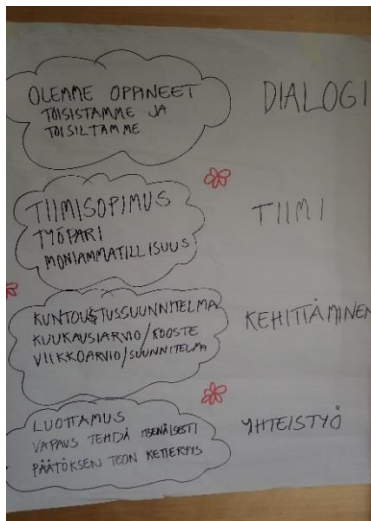 OLEMME OPPINEET
TOISISTAMME JA
TOISILTAMME
DIALOGI
TIIMISOPIMUS
TYÖPARI
MONIAMMATILLISUUS
TIIMI
KUNTOUTUSSUUNNITELMA
KUUKAUSIARVIO/KOOSTE
VIIKKOARVIO/SUUNNITELMA
KEHITTÄMINEN
LUOTTAMUS
VAPAUS TEHDÄ ITSENÄISESTI
PÄÄTÖKSEN TEON KETTERYYS
YHTEISTYÖ